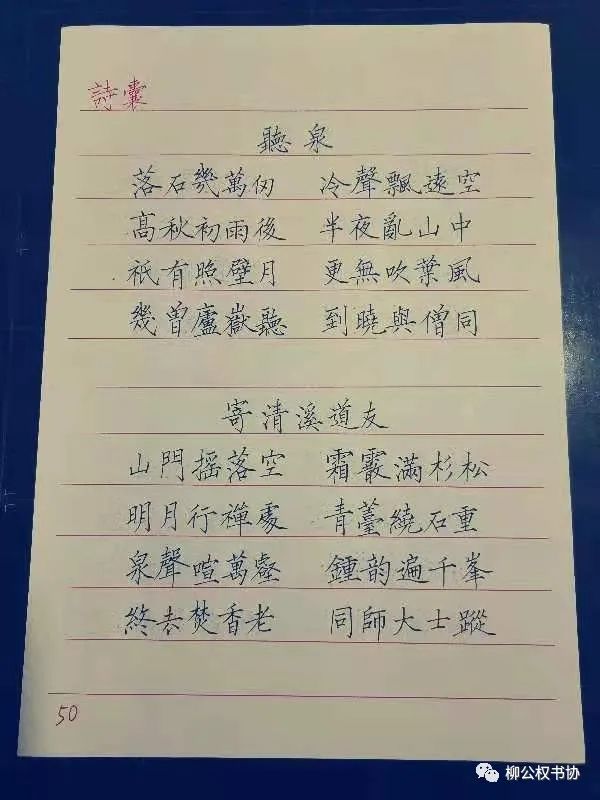 詩囊
聽泉
落石幾萬仞 冷聲飄遠空
高秋初雨後 半夜亂山中
祇有照壁月 更無吹葉風
幾曾廬嶽聽 到曉與僧同
寄清溪道友
山門搖落空 霜霰滿杉松
明月行禪處 青薹繞石重
泉聲喧萬壑 鍾韵遍千峯
終去焚香老 同師大士蹤
50
柳公权书协